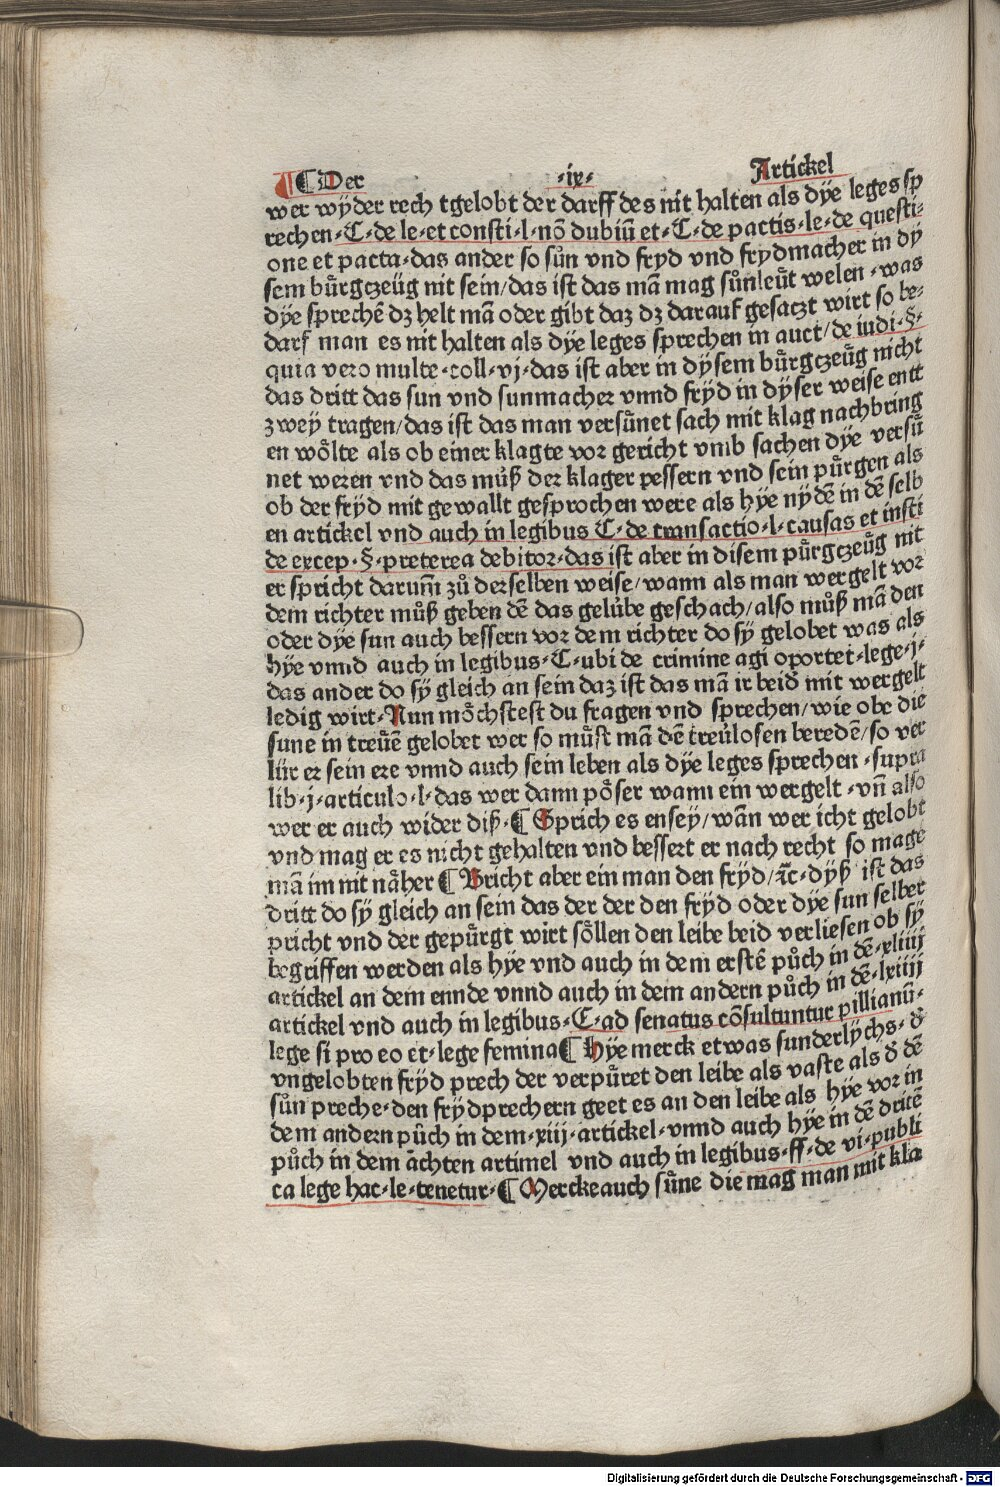 ¶ ⸿ Der ·ix· Artickel
wer wÿder rech tgelobt der darff des nit halten als dÿe leges sp
rechen·C·de le·et consti·l·nō dubiū et·C·de pactis·le·de questi⸗
one et pacta·das ander so sůn vnd fryd vnd frydmacher in dÿ
sem bürgczeüg nit sein/das ist das mā mag sůnleüt welen·was
dÿe sprechē dz helt mā oder gibt daz dz darauf gesaczt wirt so be⸗
darf man es nit halten als dÿe leges sprechen in auct/de iudi·§·
quia vero multe·coll·vj·das ist aber in dÿsem bürgczeüg nicht
das dritt das sun vnd sunmacher vnnd frÿd in dÿser weise entt
zweÿ tragen/das ist das man versünet sach mit klag nachbring
en wölte als ob einer klagte vor gericht vmb sachen dÿe versü
net weren vnd das můß der klager pessern vnd sein pürgen als
ob der frÿd mit gewallt gesprochen were als hÿe nÿdē in dē selb
en artickel vnd auch in legibus C·de transactio·l·causas et insti
de excep·§·preterea debitor·das ist aber in disem pürgczeüg nit
er spricht darum̄ zů derselben weise/wann als man wergelt vor
dem richter můß geben dē das gelübe geschach/also můß mā den
oder dÿe sun auch bessern vor dem richter do sÿ gelobet was als
hÿe vnnd auch in legibus·C·ubi de crimine agi oportet·lege·j·
das ander do sÿ gleich an sein daz ist das mā ir beid mit wergelt
ledig wirt·Nun möchstest du fragen vnd sprechen/wie obe die
sune in treüē gelobet wer so müst mā dē treülosen beredē/so ver
lür er sein ere vnnd auch sein leben als dÿe leges sprechen·supra
lib·j·articulo·l·das wer dann pöser wann ein wergelt·vn̄ also
wer er auch wider diß·⸿ Sprich es ensey/wān wer icht gelobt
vnd mag er es nicht gehalten vnd bessert er nach recht so mage
mā im nit näher ⸿ Bricht aber ein man den frÿd/ꝛc·dÿß ist das
dritt do sÿ gleich an sein das der der den frÿd oder dÿe sun selber
pricht vnd der gepürgt wirt söllen den leibe beid verliesen ob sÿ
begriffen werden als hÿe vnd auch in dem erstē půch in dē·xliiij
artickel an dem ennde vnnd auch in dem andern půch in dē·lxiiij
artickel vnd auch in legibus·C·ad senatus cōsultuntur pillianū·
lege si pro eo et·lege femina⸿ Hÿe merck etwas sunderlÿchs·d̄
vngelobten frÿd prech der verpüret den leibe als vaste als d̄ dē
sůn preche·den frÿdprechern geet es an den leibe als hÿe vor in
dem andern půch in dem·xiij·artickel·vnnd auch hÿe in dē dritē
půch in dem āchten artimel vnd auch in legibus·ff·de vi·publi
ca lege hac·le·tenetur·⸿ Merckeauch süne die mag man mit kla
Digitalisierung gefördert durch die Deutsche Forschungsgemeinschaft - DFG